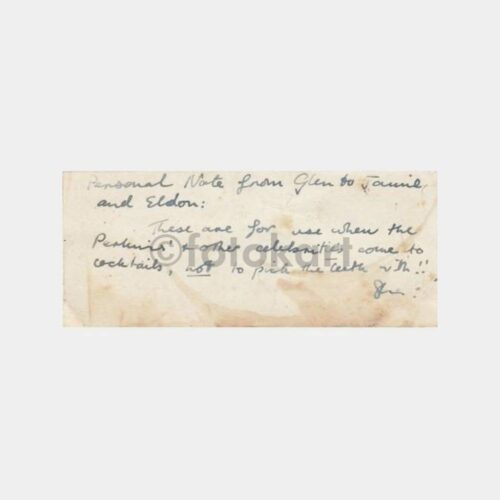 Personal Note from Glen to Jamie
and Eldon:
These are for use when the
Perkins' & other celebrities come to
cocktails, not to pick the teeth with!!
©fotokart